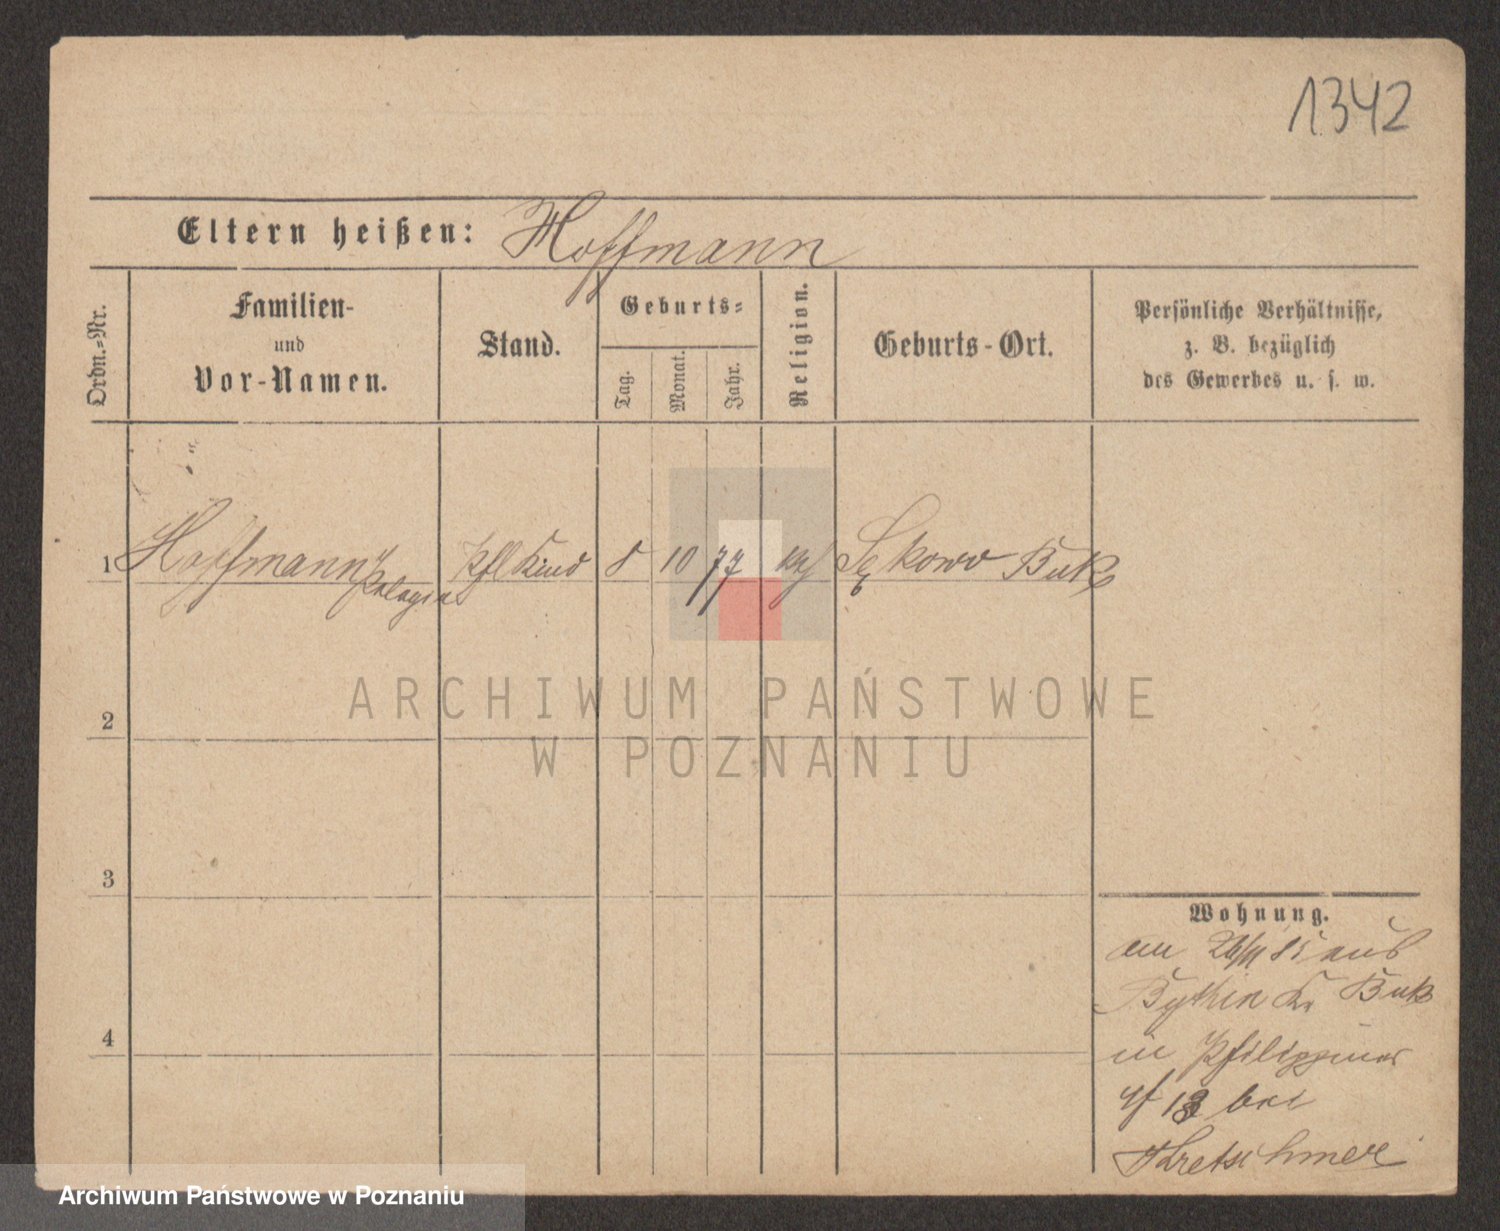 1342
Eltern heißen: Hoffmann
Ordn.-Nr.
Familien-
und
Vor-Namen.
Stand.
Geburts-
Tag.
Monat.
Jahr.
Religion.
Geburts-Ort.
Persönliche Verhältnisse,
z. B. bezüglich
des Gewerbes u. s. w.
1 Hoffmann Pelagia Pfl Kind 8 10 77 Sękowo Buk
2
3
4
Wohnung.
am 26/11 85 aus
Bythin Kr Buk
in
bei
Kretschmer
ARCHIWUM PAŃSTWOWE
W POZNANIU
Archiwum Państwowe w Poznaniu